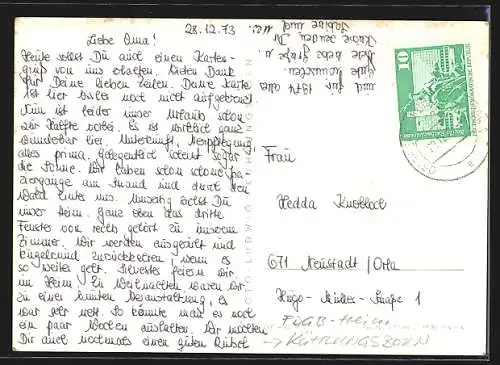 28.12.73
Liebe Oma!
Heute sollst Du auch einen Karten-
gruß von uns erhalten. Vielen Dank
für Deine lieben Zeilen. Deine Karte
ist hier bisher noch nicht aufgetaucht.
Nun ist leider unser Urlaub schon
zur Hälfte vorbei. Es ist wirklich ganz
wunderbar hier. Unterkunft, Verpflegung,
alles prima. Gelegentlich scheint sogar
die Sonne. Wir haben schon schöne Spa-
ziergänge am Strand und durch den
Wald hinter uns. Umseitig siehst Du
unser Heim. Ganz oben das dritte
Fenster von rechts gehört zu unserem
Zimmer. Wir werden ausgeruht und
kugelrund zurückkehren, wenn es
so weiter geht. Silvester feiern wir
im Heim. Zu Weihnachten waren wir
zu einer bunten Veranstaltung, es
war sehr nett. So könnte man es noch
ein paar Wochen aushalten. Wir möchten
Dir auch nochmals einen guten Rutsch
und für 1974 alles
Gute wünschen.
Viele liebe Grüße u.
Küsse senden Dir
Sabine und
10
Frau
Hedda Knobloch
671 Neustadt/Orla
Hugo-Müller-Straße 1
FDGB-Heim
→ KÜHLUNGSBORN